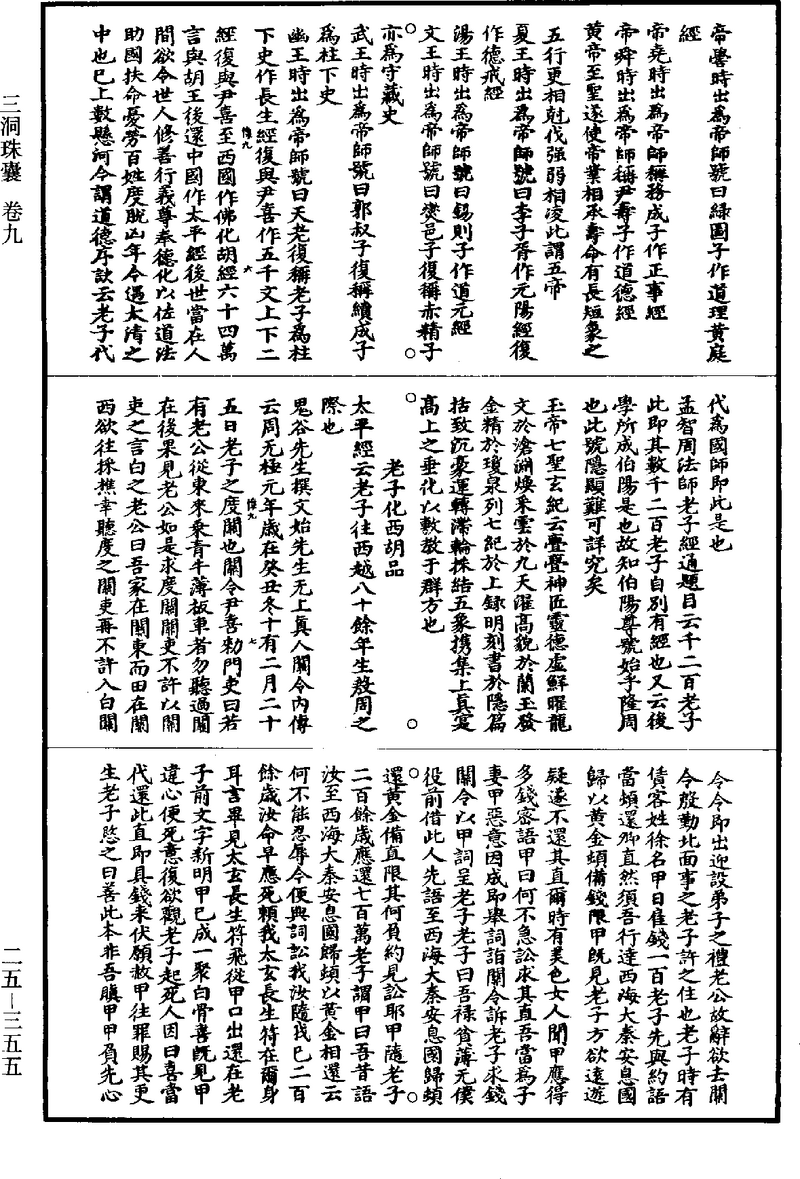 帝嚳時出爲帝師號曰綠圖子作道理黃庭
經
帝堯時出爲帝師稱務成子作正事經
帝舜時出爲帝師稱尹壽子作道德經
黃帝至聖遂使帝業相承壽命有長短象之
五行更相剋伐强弱相凌此謂五帝
夏王時出爲帝師號曰李子胥作元陽經復
作德戒經
湯王時出爲帝師號曰錫則子作道元經
文王時出爲帝師號曰燮邑子復稱赤精子
亦爲守藏史
武王時出爲帝師號曰郭叔子復稱續成子
爲柱下史
幽王時出爲帝師號曰天老復稱老子爲柱
下史作長生經復與尹喜作五千文上下二
經復與尹喜至西國作佛化胡經六十四萬
言與胡王後還中國作太平經後世當在人
間欲令世人修善行義尊奉德化以佐道法
助國扶命憂勞百姓度脫凶年令遇太清之
中也巳上數懸河今謂道德序訣云老子代
代爲國師即此是也
孟智周法師老子經通題目云千二百老子
此即其數千二百老子自別有經也又云後
學所成伯陽是也故知伯陽尊號始乎隆周
也此號隱顯難可詳究矣
玉帝七聖玄紀云亹亹神匠靈德虛鮮曜龍
文於滄淵煥采雲於九天濯高貌於蘭玉發
金精於瓊泉列七紀於上錄明刻書於隱篇
括致沉豪運轉滯輪揉結五象携集上真宴
高上之垂化以敷敎于群方也
老子化西胡品
太平經云老子往西越八十餘年生殷周之
際也
鬼谷先生撰文始先生无上真人關令內傳
云周无極元年歲在癸丑冬十有二月二十
五日老子之度關也關令尹喜勑門吏曰若
有老公從東來乘青牛薄板車者勿聽過關
在後果見老公如是求度關關吏不許以關
吏之言白之老公曰吾家在關東而田在關
西欲往採樵幸聽度之關吏再不許入白關
令令即出迎設弟子之禮老公故辭欲去關
令慇勤北面事之老子許之住也老子時有
賃客姓徐名甲日雇錢一百老子先與約語
當頓還卿直然須吾行達西海大秦安息國
歸以黃金頓備錢限甲旣見老子方欲遠遊
疑遂不還其直爾時有美色女人聞甲應得
多錢密語甲曰何不急訟求其直吾當爲子
妻甲惡意因成即舉詞詣關令訴老子求錢
關令以甲詞呈老子老子曰吾祿貧薄无僕
役前借此人先語至西海大秦安息國歸頓
還黃金備直限其何負約見訟耶甲隨老子
二百餘歲應還七百萬老子謂甲曰吾昔語
汝至西海大秦安息國歸頓以黃金相還云
何不能忍辱今便與詞訟我汝隨我巳二百
餘歲汝命早應死賴我太玄長生符在爾身
耳言畢見太玄長生符飛從甲口出還在老
子前文字新明甲巳成一聚白骨喜旣見甲
違心便死意復欲觀老子起死人因曰喜當
代還此直即具錢來伏願赦甲往罪賜其更
生老子愍之曰善此本非吾瞋甲甲負先心
惟九 六
惟九 七
三洞珠囊 卷九
二五—三五五